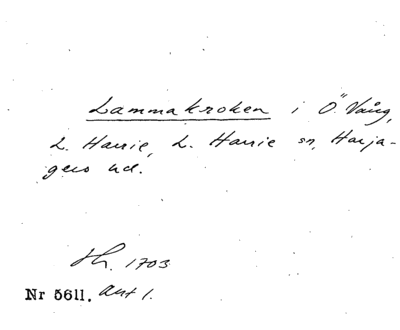 Lammakroken i Ö. Vång,
L. Harrie, L. Harrie sn, Harja-
gers hd.
Nr 5611. Akt 1.